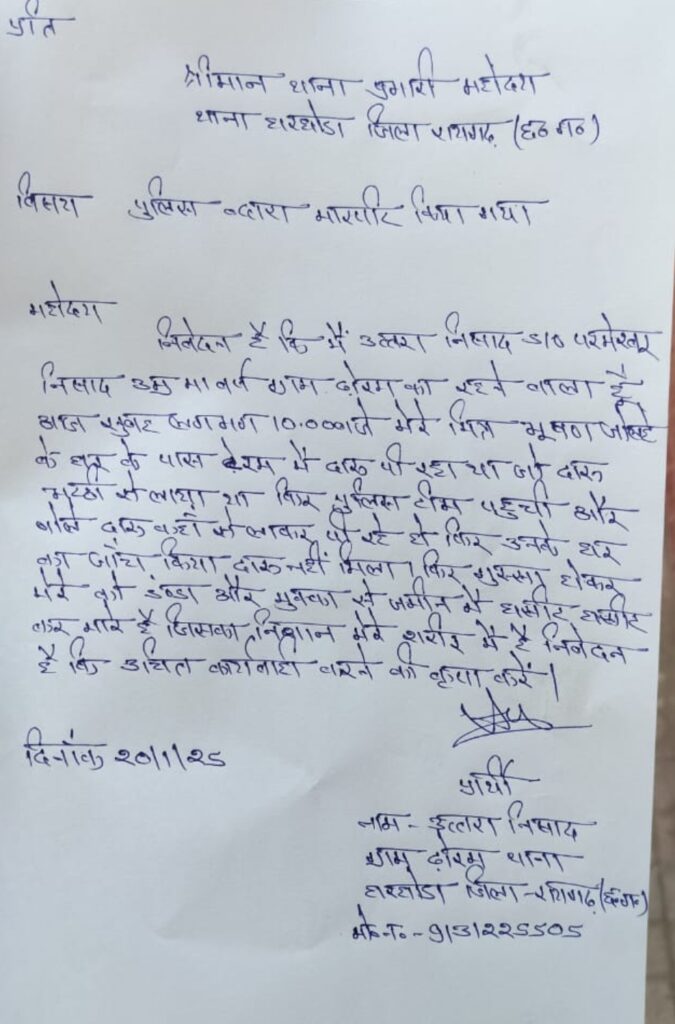 प्रति
श्रीमान थाना प्रभारी महोदय
थाना घरघोडा जिला रायगढ़ (छ०ग०)
विसय पुलिस व्दारा मारपीट किया गया
महोदय
निवेदन है कि मैं उत्तरा निसाद S/o परमेश्वर
निसाद उम्र वर्ष ग्राम ढोरम का रहने वाला हूँ
आज सुबह लगभग 10.00बजे मेरे मित्र भूषण
के घर के पास में दारू पी रहा था जो दारू
भट्ठी से लाया था फिर पुलिस टीम पहुची और
बोले दारू कहाँ से लाकर पी रहे हो फिर उनके घर
का जाँच किया दारू नहीं मिला। फिर गुस्सा होकर
मेरे को डंण्डा और मुक्का से जमीन में घसीट घसीट
कर मारे है जिसका निशान मेरे शरीर में है निवेदन
है कि उचित कार्यवाही करने की कृपा करें।
दिनांक 20/1/25
प्रार्थी
नाम - उत्तरा निसाद
ग्राम ढोरम थाना
घरघोडा जिला - रायगढ़ (छ०ग०)
मो०न० - 9131225505